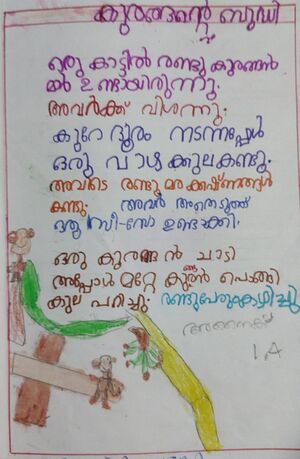 കുരങ്ങന്റെ ബുദ്ധി
ഒരു കാട്ടിൽ രണ്ടു കുരങ്ങൻ
മാർ ഉണ്ടായിരുന്നു.
അവർക്ക് വിശന്നു.
കുറേ ദൂരം നടന്നപ്പോൾ
ഒരു വാഴക്കുലകണ്ടു.
അവിടെ രണ്ടു മരക്കഷ്ണങ്ങൾ
കണ്ടു. അവർ അതെടുത്ത്
ഒരു സീ-സോ ഉണ്ടാക്കി.
ഒരു കുരങ്ങൻ ചാടി
അപ്പോൾ മറ്റേ പൊങ്ങി
കുല പറിച്ചു. രണ്ടുപേരും കഴിച്ചു
1 A